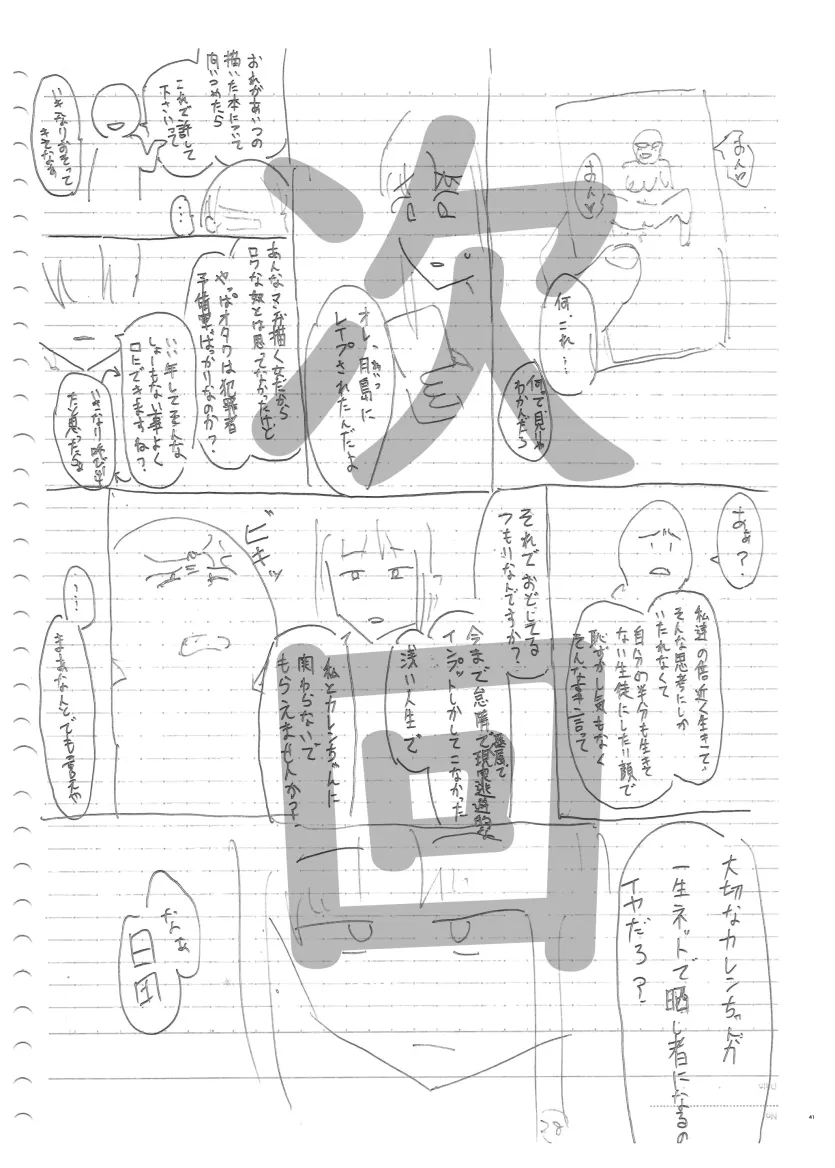 はん♡
はん♡
何、これ…
何で見りゃ
わかんだろ
オレ、月島に
レイプされたんだよ
おれがあいつの
描いた本について
問いつめたら
これで許して
下さいって
いきなりおそって
きてなぁ
…
あんなマンガ描く女だから
ロクな奴とは思ってなかったけど
やっぱオタクは犯罪者
予備軍ばっかりなのか?
いい年してそんな
しょーもない事よく
口にできますね?
いきなり呼び出し
たと思ったら
あぁ?
私達の倍近く生きて、
そんな思考にしか
いたれなくて
自分の半分も生きて
ない生徒にしたり顔で
恥ずかし気もなく
そんな事言って
それでおどしてる
つもりなんですか?
今まで怠惰で現実逃避的な
インプットしかしてこなかった
浅い人生で
私とカレンちゃんに
関わらないで
もらえませんか?
ビキッ
…
まぁなんとでも言えや
大切なカレンちゃんが
一生ネットで晒し者になるの
イヤだろ?
なんあ
次回
38
41